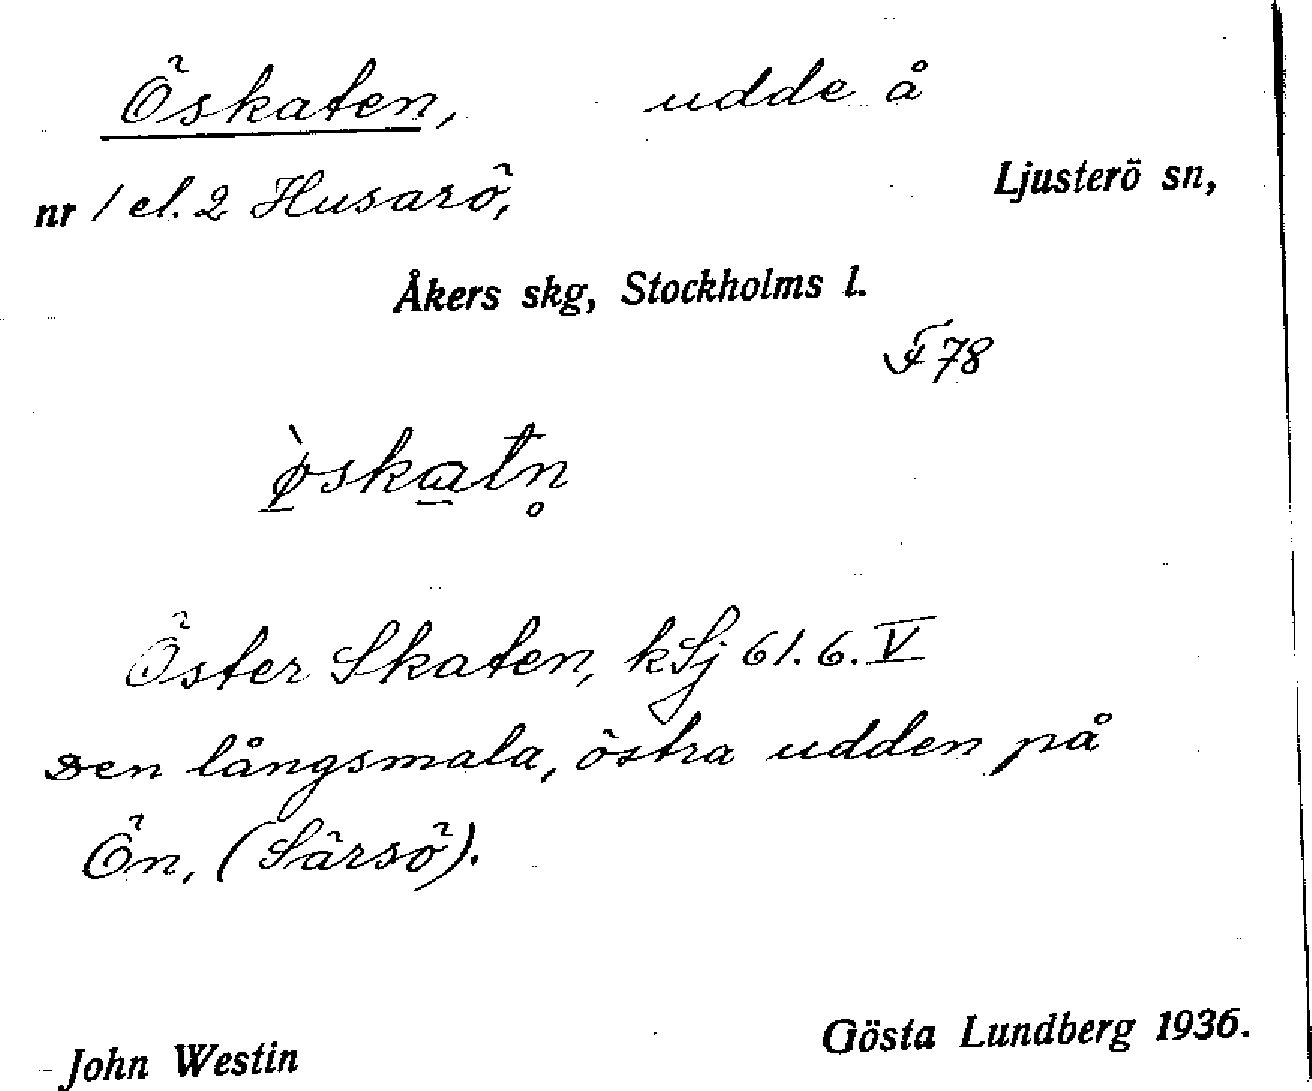 Öskaten, udde å
nr 1 el. 2 Husarö, Ljusterö sn,
Åkers skg, Stockholms l.
F 78
ø̀skatn̥
Öster Skaten, kSj 61. 6. V
Den långsmala, östra udden på
Ön, (Särsö).
John Westin Gösta Lundberg 1936.